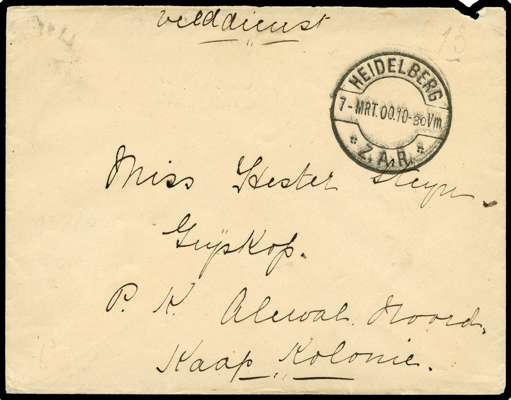 velddienst
13
HEIDELBERG
7-MRT.00.10-30Vm
* Z.A.R. *
Miss Hester Steyn
Grijskop.
P. K. Aliwal Noord.
Kaap Kolonie.